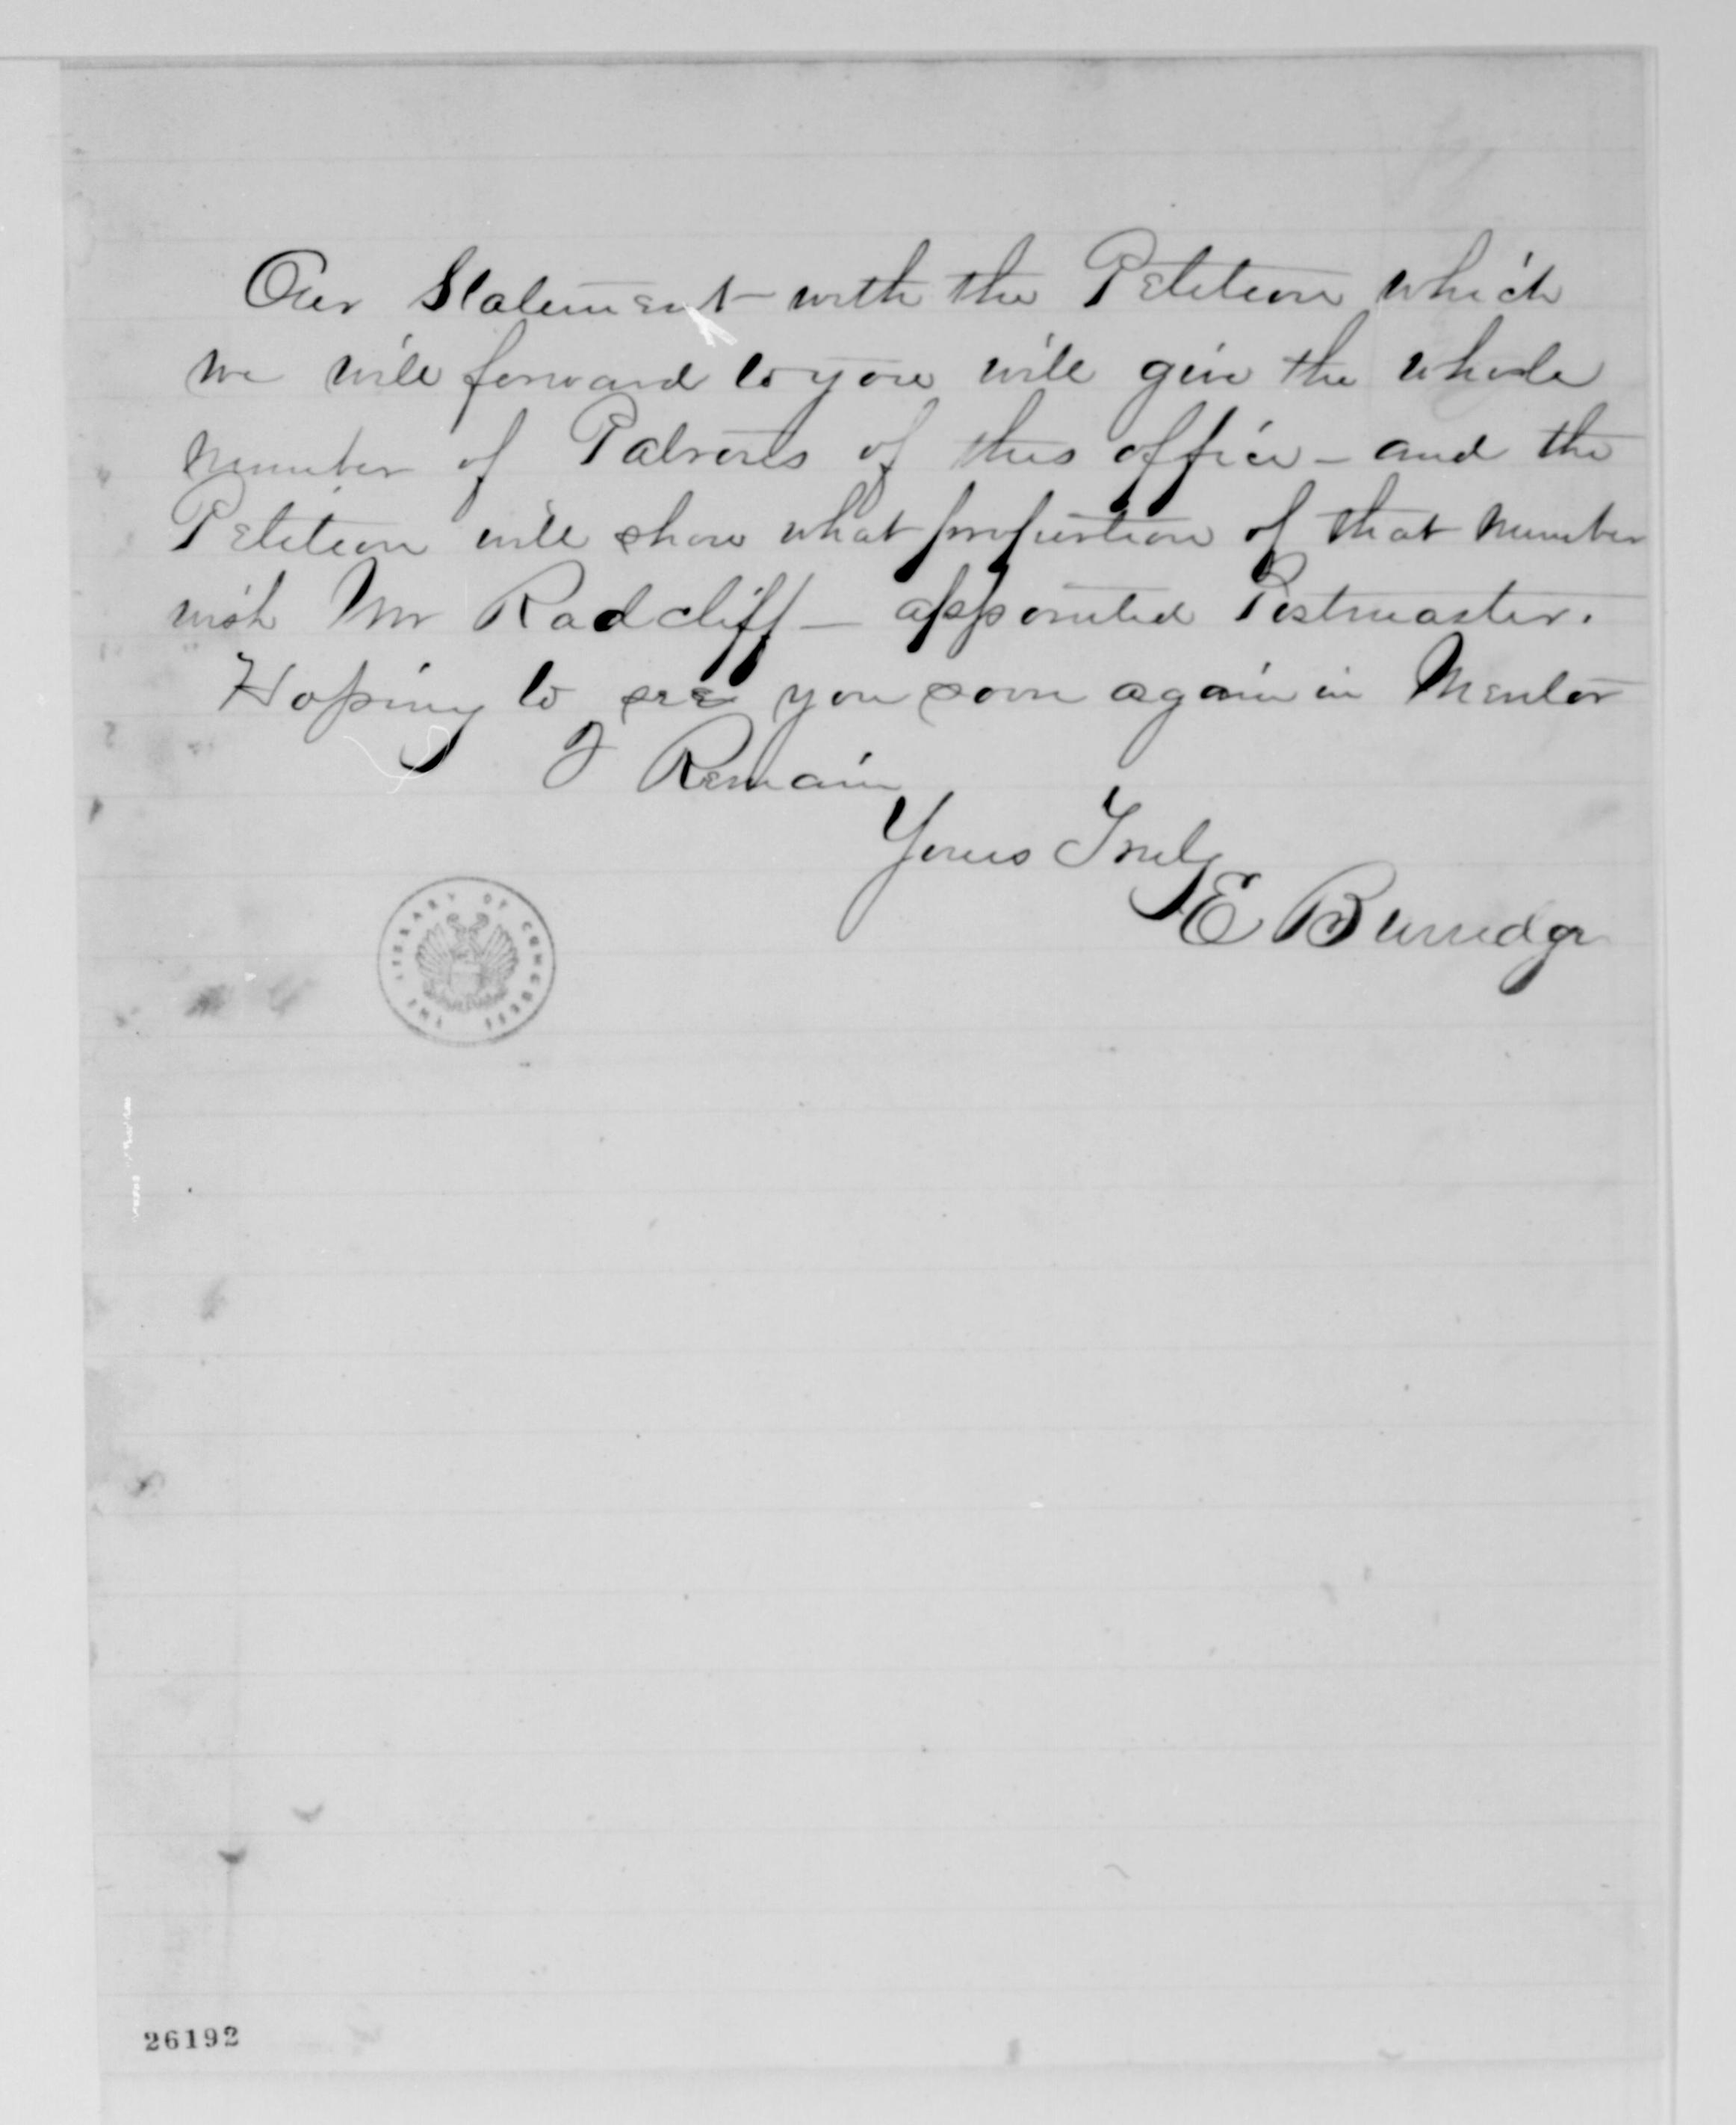 Our Statement - with the Petition which
we will forward to you will give the whole
number of Patrons of this office - and the
Petition will show what proportion of that number
wish Mr Radcliff - appointed Postmaster.
Hoping to see you soon again in Mentor
I Remain
Yours Truly
E Burridge
THE LIBRARY OF CONGRESS
26192